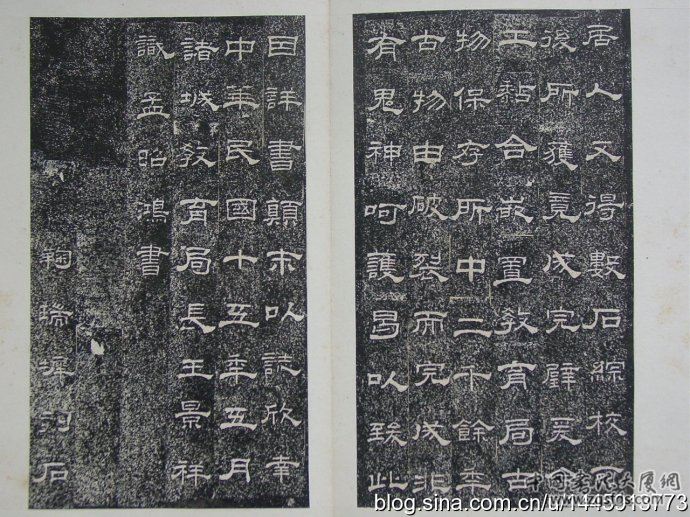 居人又得數石綜校
後所獲竟成完璧爰
工黏合嵌置教育局古
物保存所中二千餘年
古物由破裂而完成非
有鬼神呵護曷以致此
因詳書顛末以誌欣幸
中華民國十五年五月
諸城教育局長王景祥
識孟昭鴻書
瑞墀刻石
blog.sina.com.cn/u/1445513773